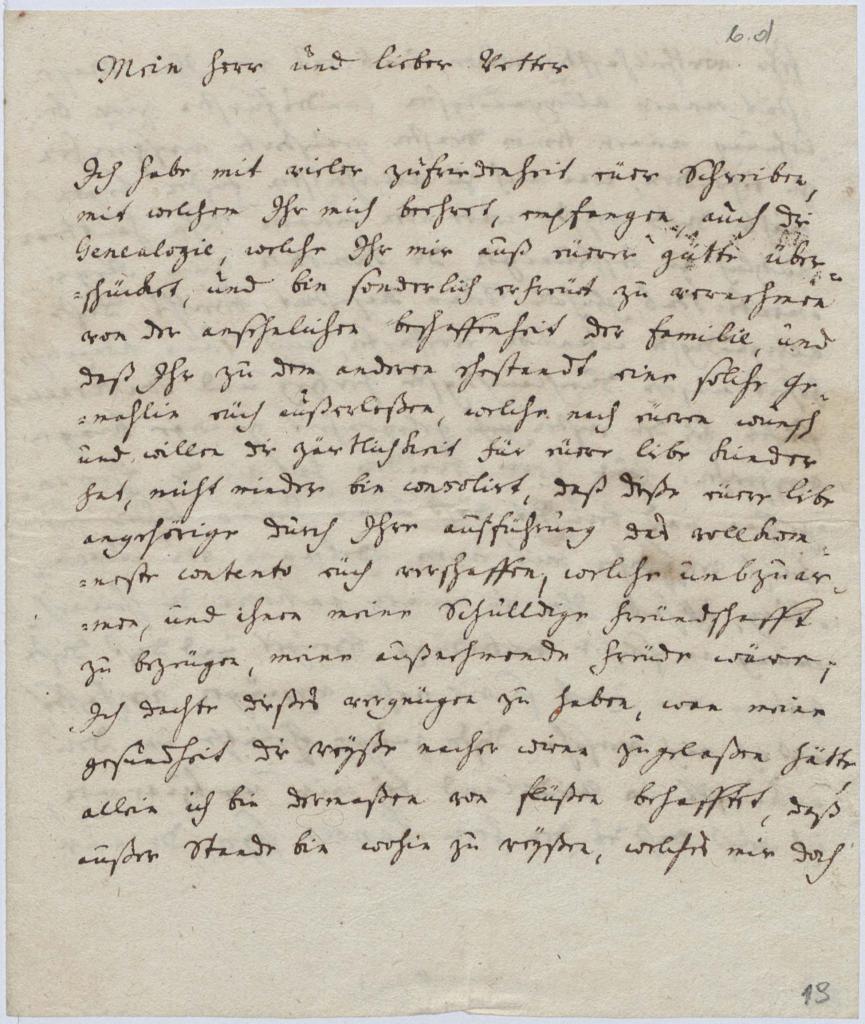 6.d
Mein Herr und lieber Vetter
Ich habe mit vieler zufriedenheit eüer Schreiben,
mit welchem Ihr mich beehret, empfangen, auch die
Genealogie, welche Ihr mir auß eüerer gütte über-
=schücket, und bin sonderlich erfreüet zu vernehmen
von der ansehnlichen beschaffenheit der familie, und
daß Ihr zu dem anderen ehestandt eine solche ge-
=mahlin eüch außerleßen, welche nach eüeren wunsch
und willen die zärtlichkeit für eüere libe kinder
hat, nicht minder bin consolirt, daß dieße eüere libe
angehörige durch Ihre aufführung das vollkom-
=neste contento eüch verschaffen, welche umbzuar-
=men, und ihnen meine Schülldige freündschafft
zu bezeügen, meine außnehmende freüde wäre;
Ich dachte dießes vergnügen zu haben, wan meine
gesundheit die reyße nacher wienn zugelaßen hätte,
allein ich bin dermaßen von flüßen behafftet, daß
außer Stande bin wohin zu reyßen, welches mir doch
13